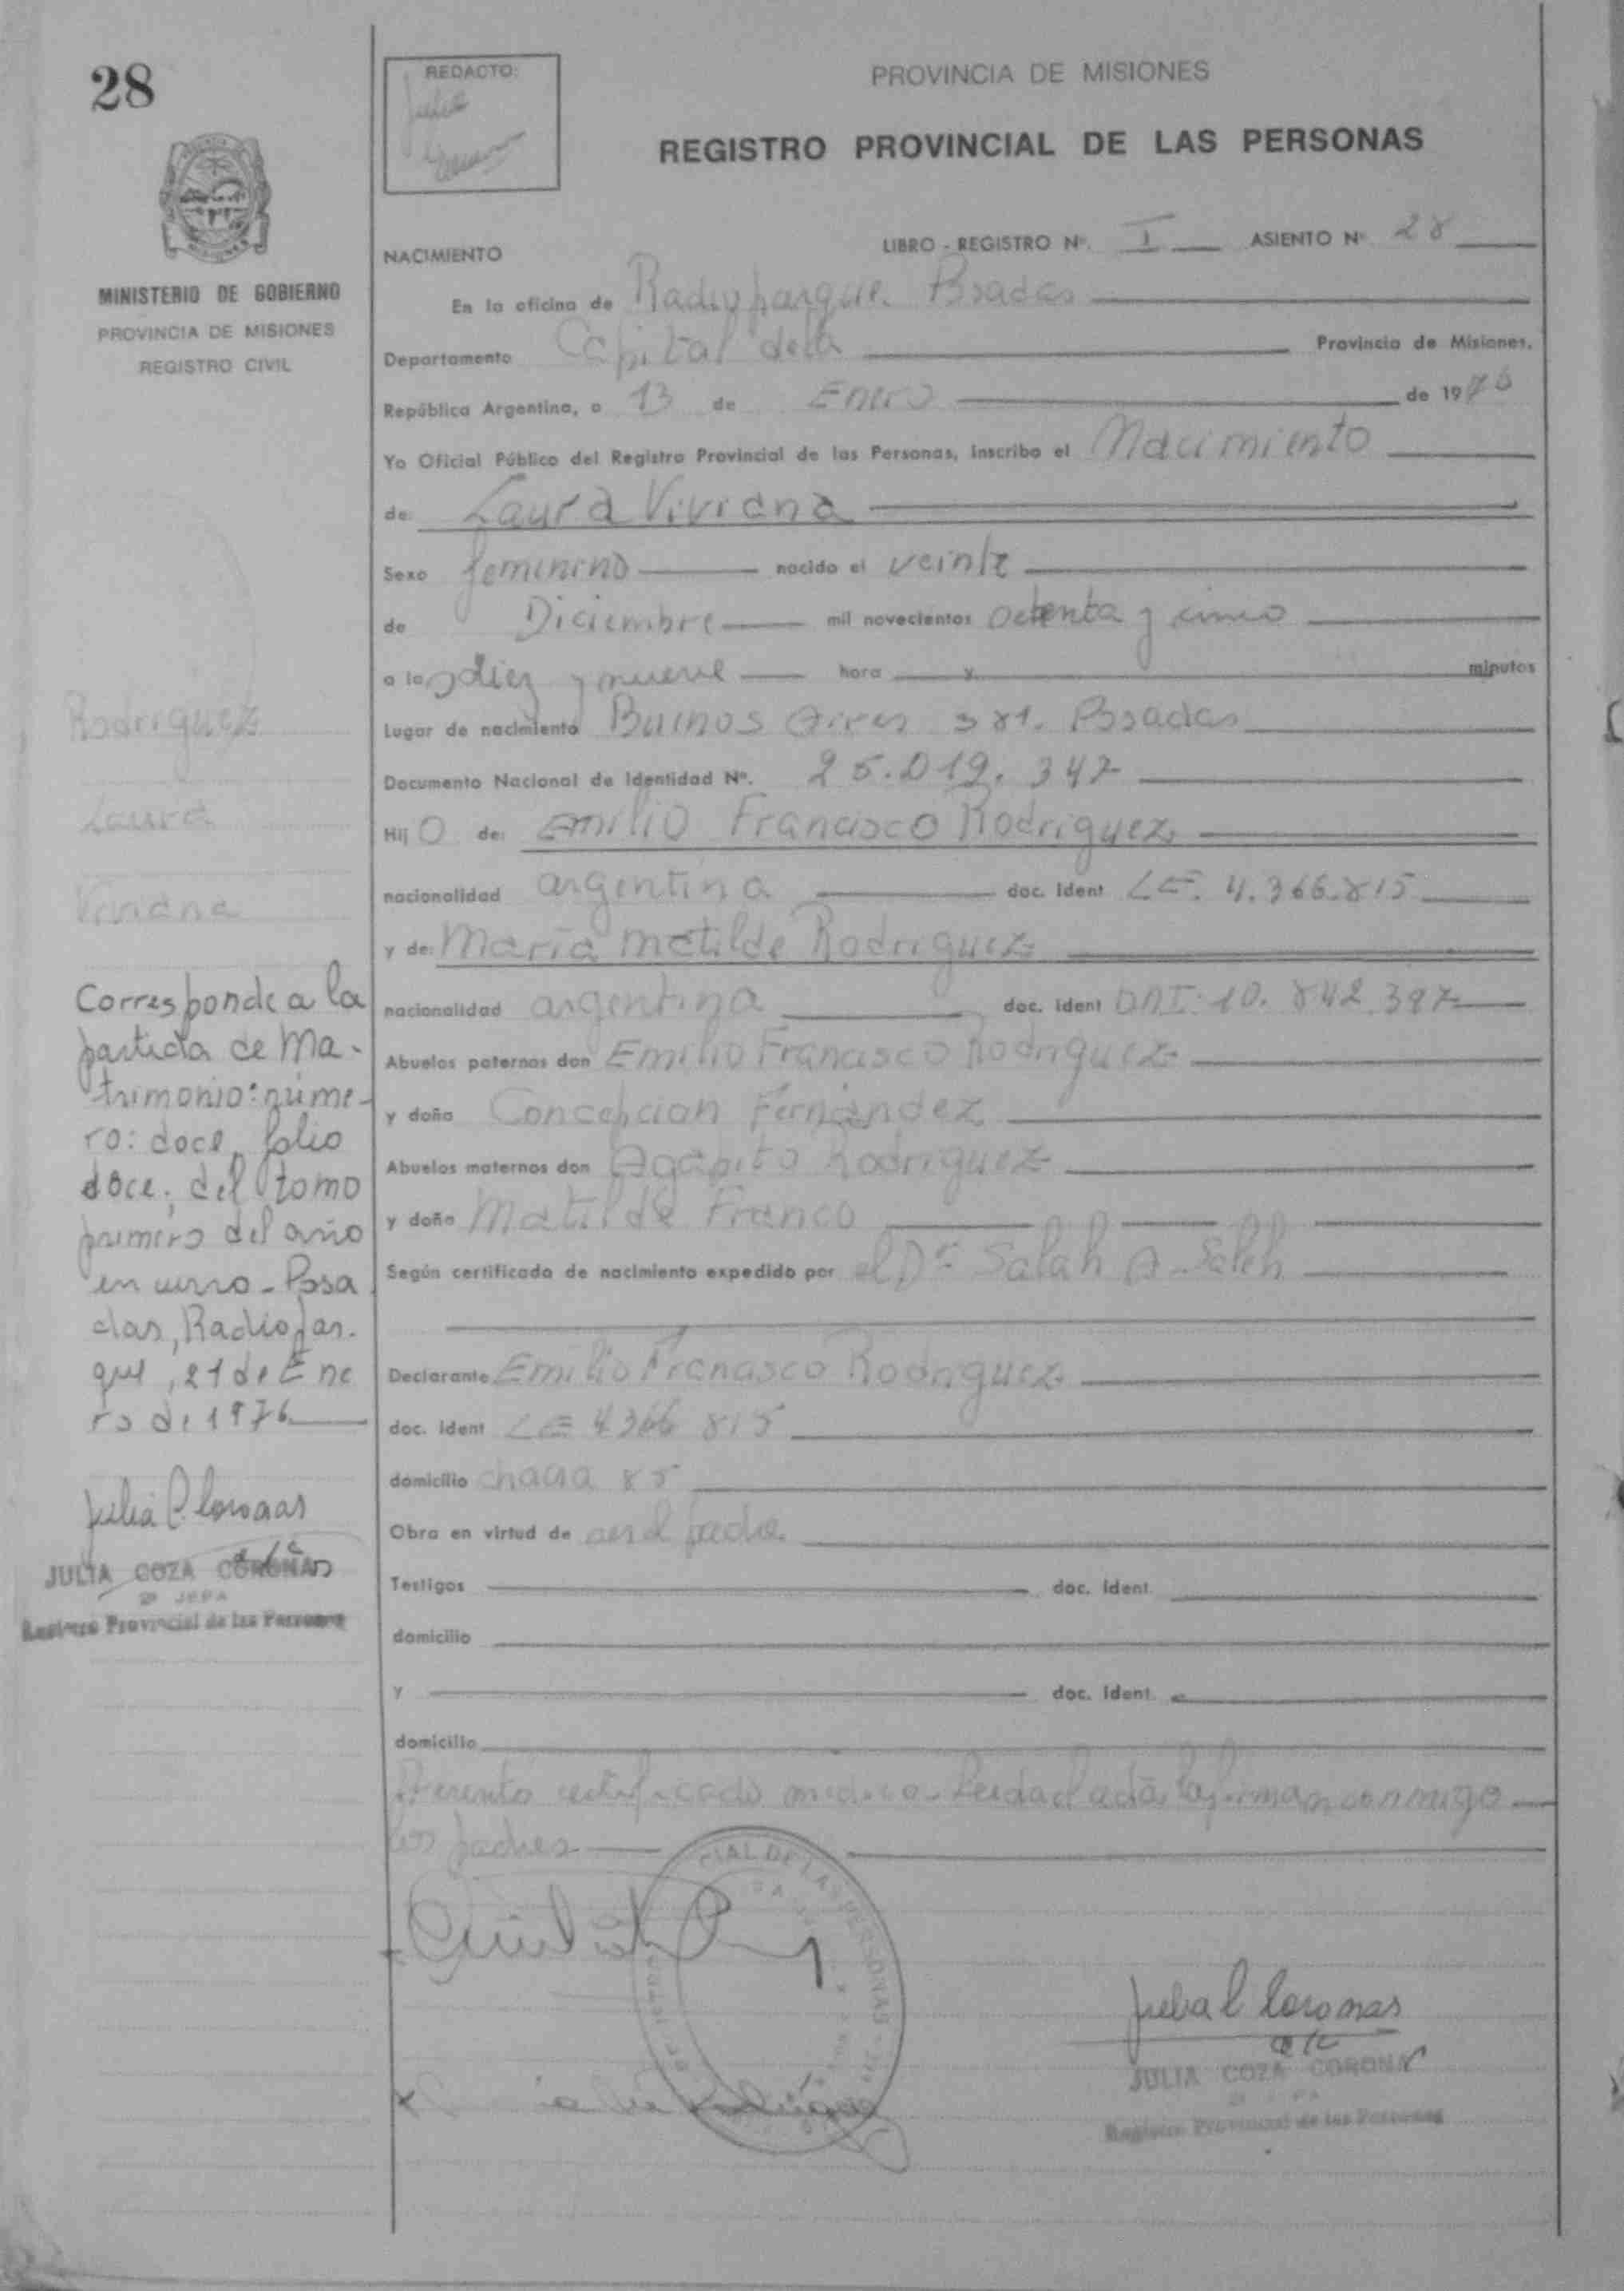 28
REDACTO:
PROVINCIA DE MISIONES
REGISTRO PROVINCIAL DE LAS PERSONAS
MINISTERIO DE GOBIERNO
PROVINCIA DE MISIONES
REGISTRO CIVIL
NACIMIENTO
LIBRO - REGISTRO Nº. I ASIENTO Nº 28
En la oficina de Radioparque. Posadas
Departamento Capital dela Provincia de Misiones,
República Argentina, a 13 de Enero de 1976
Yo Oficial Público del Registro Provincial de las Personas, inscribo el Nacimiento
de: Laura Viviana
Sexo femenino nacido el veinte
de Diciembre mil novecientos setenta y cinco
a las diez y nueve hora y minutos
Lugar de nacimiento Buenos Aires 381. Posadas
Documento Nacional de Identidad Nº. 25.019.347
Hij O de: Emilio Francisco Rodriguez
nacionalidad argentina doc. Ident LE. 4.366.815
y de: Maria Matilde Rodriguez
nacionalidad argentina doc. Ident DNI. 10.842.397
Abuelos paternos don Emilio Francisco Rodriguez
y doña Concepcion Fernandez
Abuelos maternos don Agapito Rodriguez
y doña Matilde Franco
Según certificado de nacimiento expedido por el Dr. Salah A. Saleh
Declarante Emilio Francisco Rodriguez
doc. Ident LE 4366 815
domicilio chacra 85
Obra en virtud de ser el padre.
Testigos doc. Ident.
domicilio
y doc. Ident.
domicilio
Presento certificado medico. Leida el acta, la firman conmigo
los padres
Rodriguez
Laura
Viviana
Corresponde a la
partida de Ma-
trimonio: núme-
ro: doce, folio
doce, del tomo
primero del año
en curso - Posa
das, Radiopar.
que, 21 de Ene
ro de 1976
Julia C. Coronas
JULIA COZA CORONAS
2º JEFA
Registro Provincial de las Personas
CIAL DE LAS PERSONAS
Julia C Coronas
JULIA COZA CORONA
Registro Provincial de las Personas